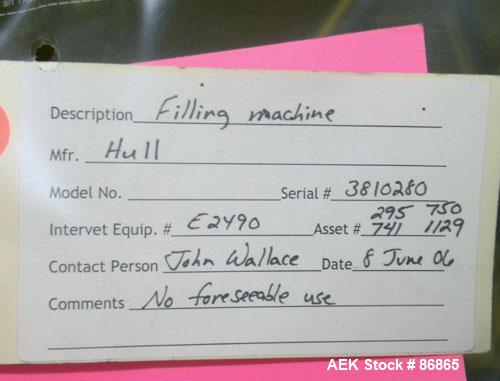 Description Filling machine
Mfr. Hull
Model No. Serial # 3810280
295 750
Intervet Equip. # E2490 Asset # 741 1129
Contact Person John Wallace Date 8 June 06
Comments No foreseeable use
AEK Stock # 86865